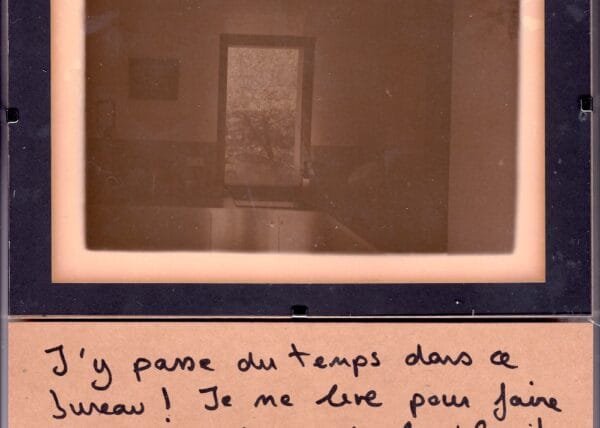 J'y passe du temps dans ce
bureau ! Je me leve pour faire